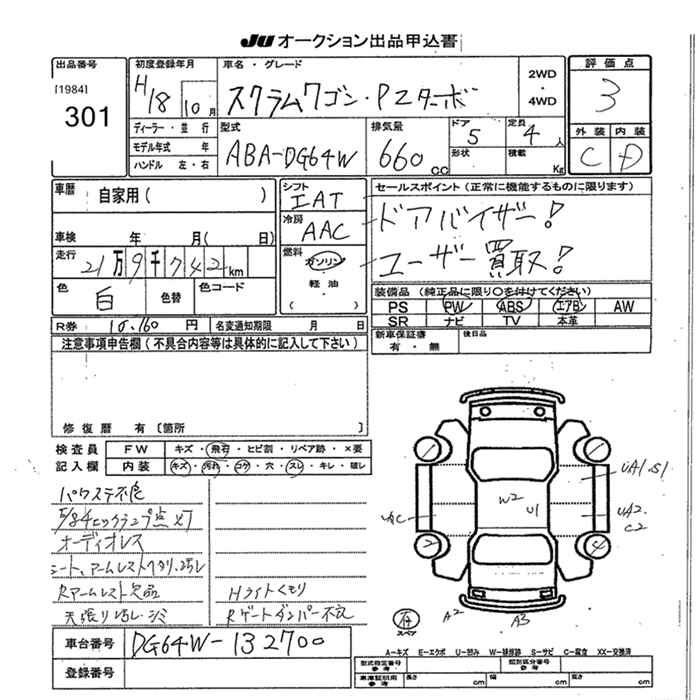 JU オークション出品申込書
出品番号 初度登録年月 車名・グレード 2WD・4WD 評価点
[1984] 301 H18 10月 スクラムワゴン・PZターボ 3
ディーラー・並行 型式 排気量 ドア 5 定員 4人 外装 内装
モデル年式 年 ABA-DG64W 660cc 形状 積載 Kg C D
ハンドル 左・右
車歴 自家用( ) シフト IAT セールスポイント(正常に機能するものに限ります)
冷房 AAC ドアバイザー!
車検 年 月( 日) ユーザー買取!
走行 21万9千742km 燃料 ガソリン・軽油
( )
色 白 色替 色コード 装備品(純正品に限り○を付けてください)
PS PW ABS エアB AW
SR ナビ TV 本革
R券 10.160円 名変通知期限 月 日 新車保証書 有・無 後日品
注意事項申告欄(不具合内容等は具体的に記入して下さい)
修復歴 有〔箇所
検査員 FW キズ・飛石・ヒビ割・リペア跡・×要
記入欄 内装 キズ・汚れ・コゲ・穴・スレ・キレ・破レ
パワステ不良
オーディオレス
Rアームレスト欠品 Hライトくもり
UA1.S1
W2 U1
UA2.
C2
2
4
A2 A3
スペア
車台番号 DG64W-132700
登録番号
A-キズ E-エクボ U-凹み W-補修跡 S-サビ C-腐食 XX-交換済
型式指定番号 参考 類別区分番号 参考
車庫証明用 参考 長さ cm 幅 cm 高さ cm